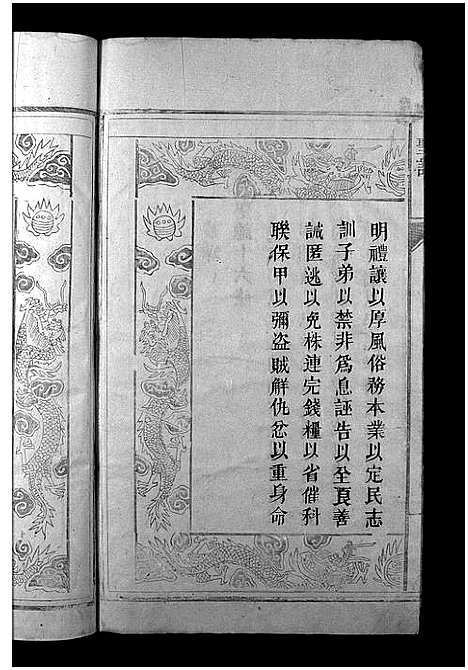 明禮讓以厚風俗務本業以定民志
訓子弟以禁非爲息誣告以全良善
誡匿逃以免株連完錢糧以省催科
聯保甲以彌盜賊觧仇忿以重身命